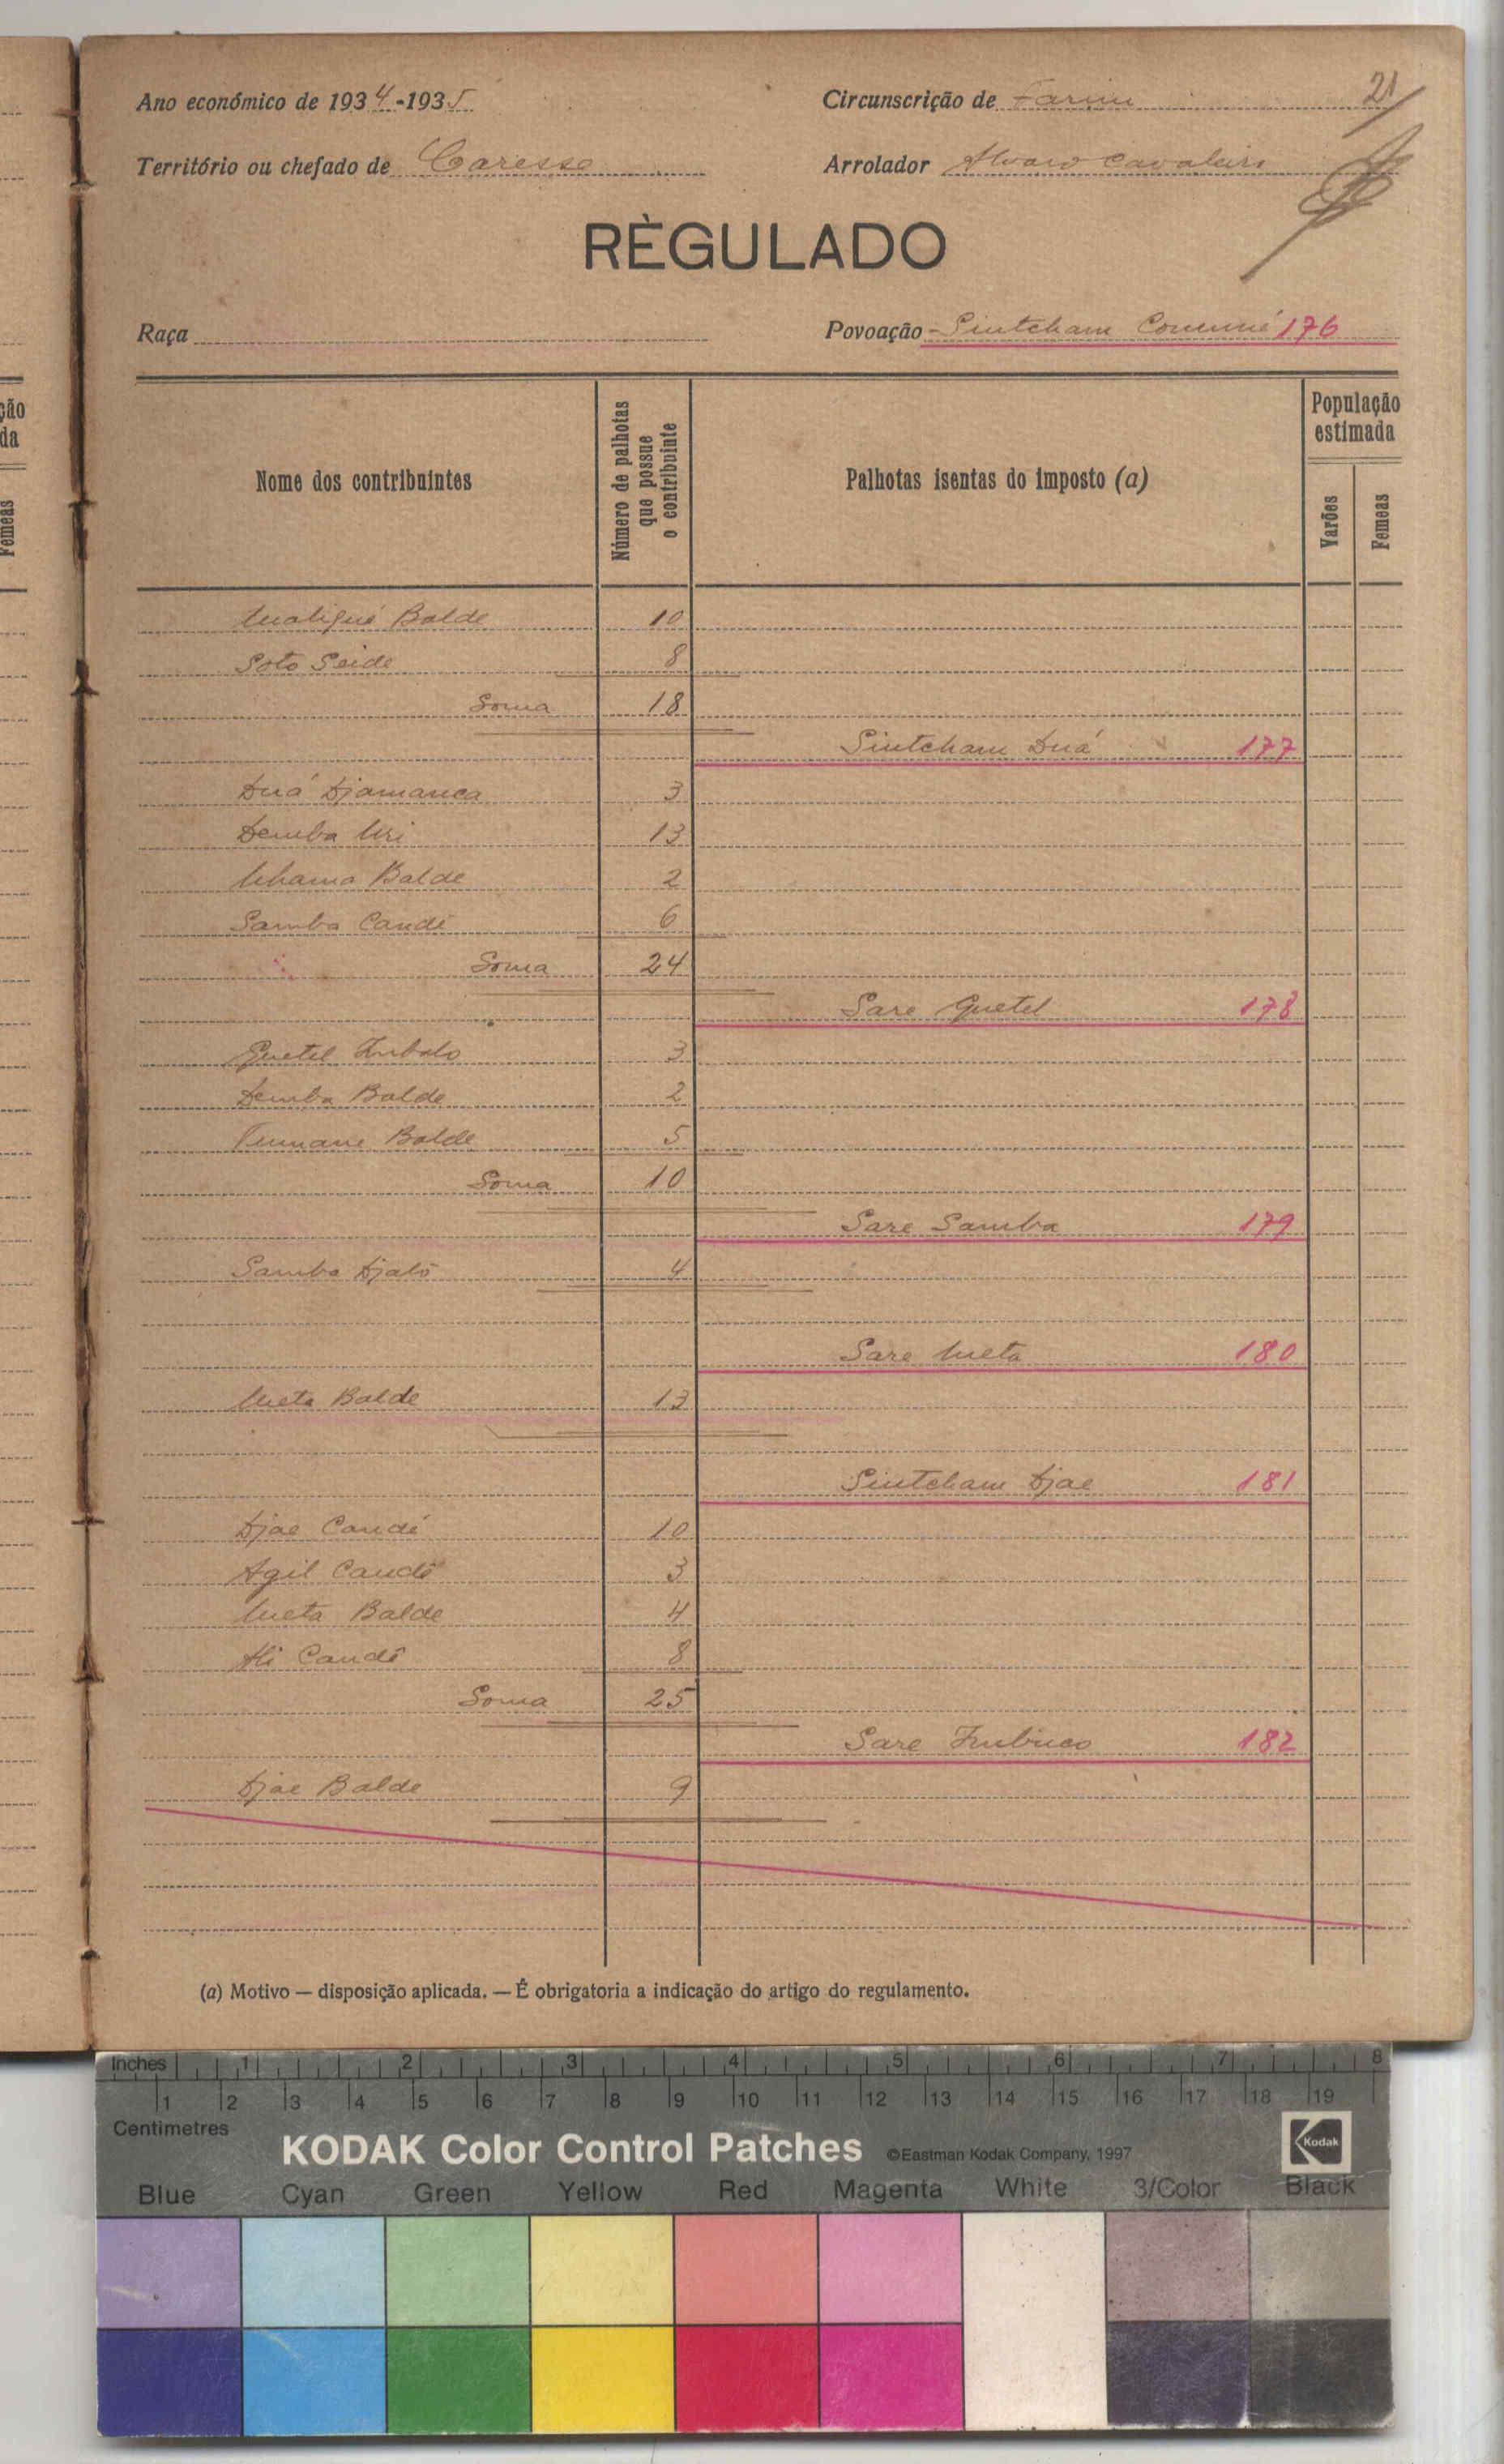 21
Ano económico de 1934-1935
Circunscrição de Farim
Território ou chefado de Caresse
Arrolador Alvaro Cavaleiro
RÈGULADO
Raça
Povoação - Sintcham Comumé 176
Nome dos contribuintes
Número de palhotas que possue o contribuinte
Palhotas isentas do imposto (a)
População estimada
Varões
Femeas
Maliqué Balde 10
Soto Seide 8
Soma 18
Sintcham Duá 177
Duá Djamanca 3
Demba Uri 13
Balde 2
Samba Candé 6
Soma 24
Sare Quetel 178
Quetel Embalo 3
Demba Balde 2
Tumane Balde 5
Soma 10
Sare Samba 179
Samba Djaló 4
Sare Meta 180
Meta Balde 13
Sintcham Djae 181
Djae Candé 10
Agil Candé 3
Meta Balde 4
Ali Candé 8
Soma 25
Sare 182
Djae Balde 9
(a) Motivo — disposição aplicada. — É obrigatoria a indicação do artigo do regulamento.
ção
da
Femeas
Inches 1 2 3 4 5 6 7 8
1 2 3 4 5 6 7 8 9 10 11 12 13 14 15 16 17 18 19
Centimetres
KODAK Color Control Patches ©Eastman Kodak Company, 1997 Kodak
Blue Cyan Green Yellow Red Magenta White 3/Color Black